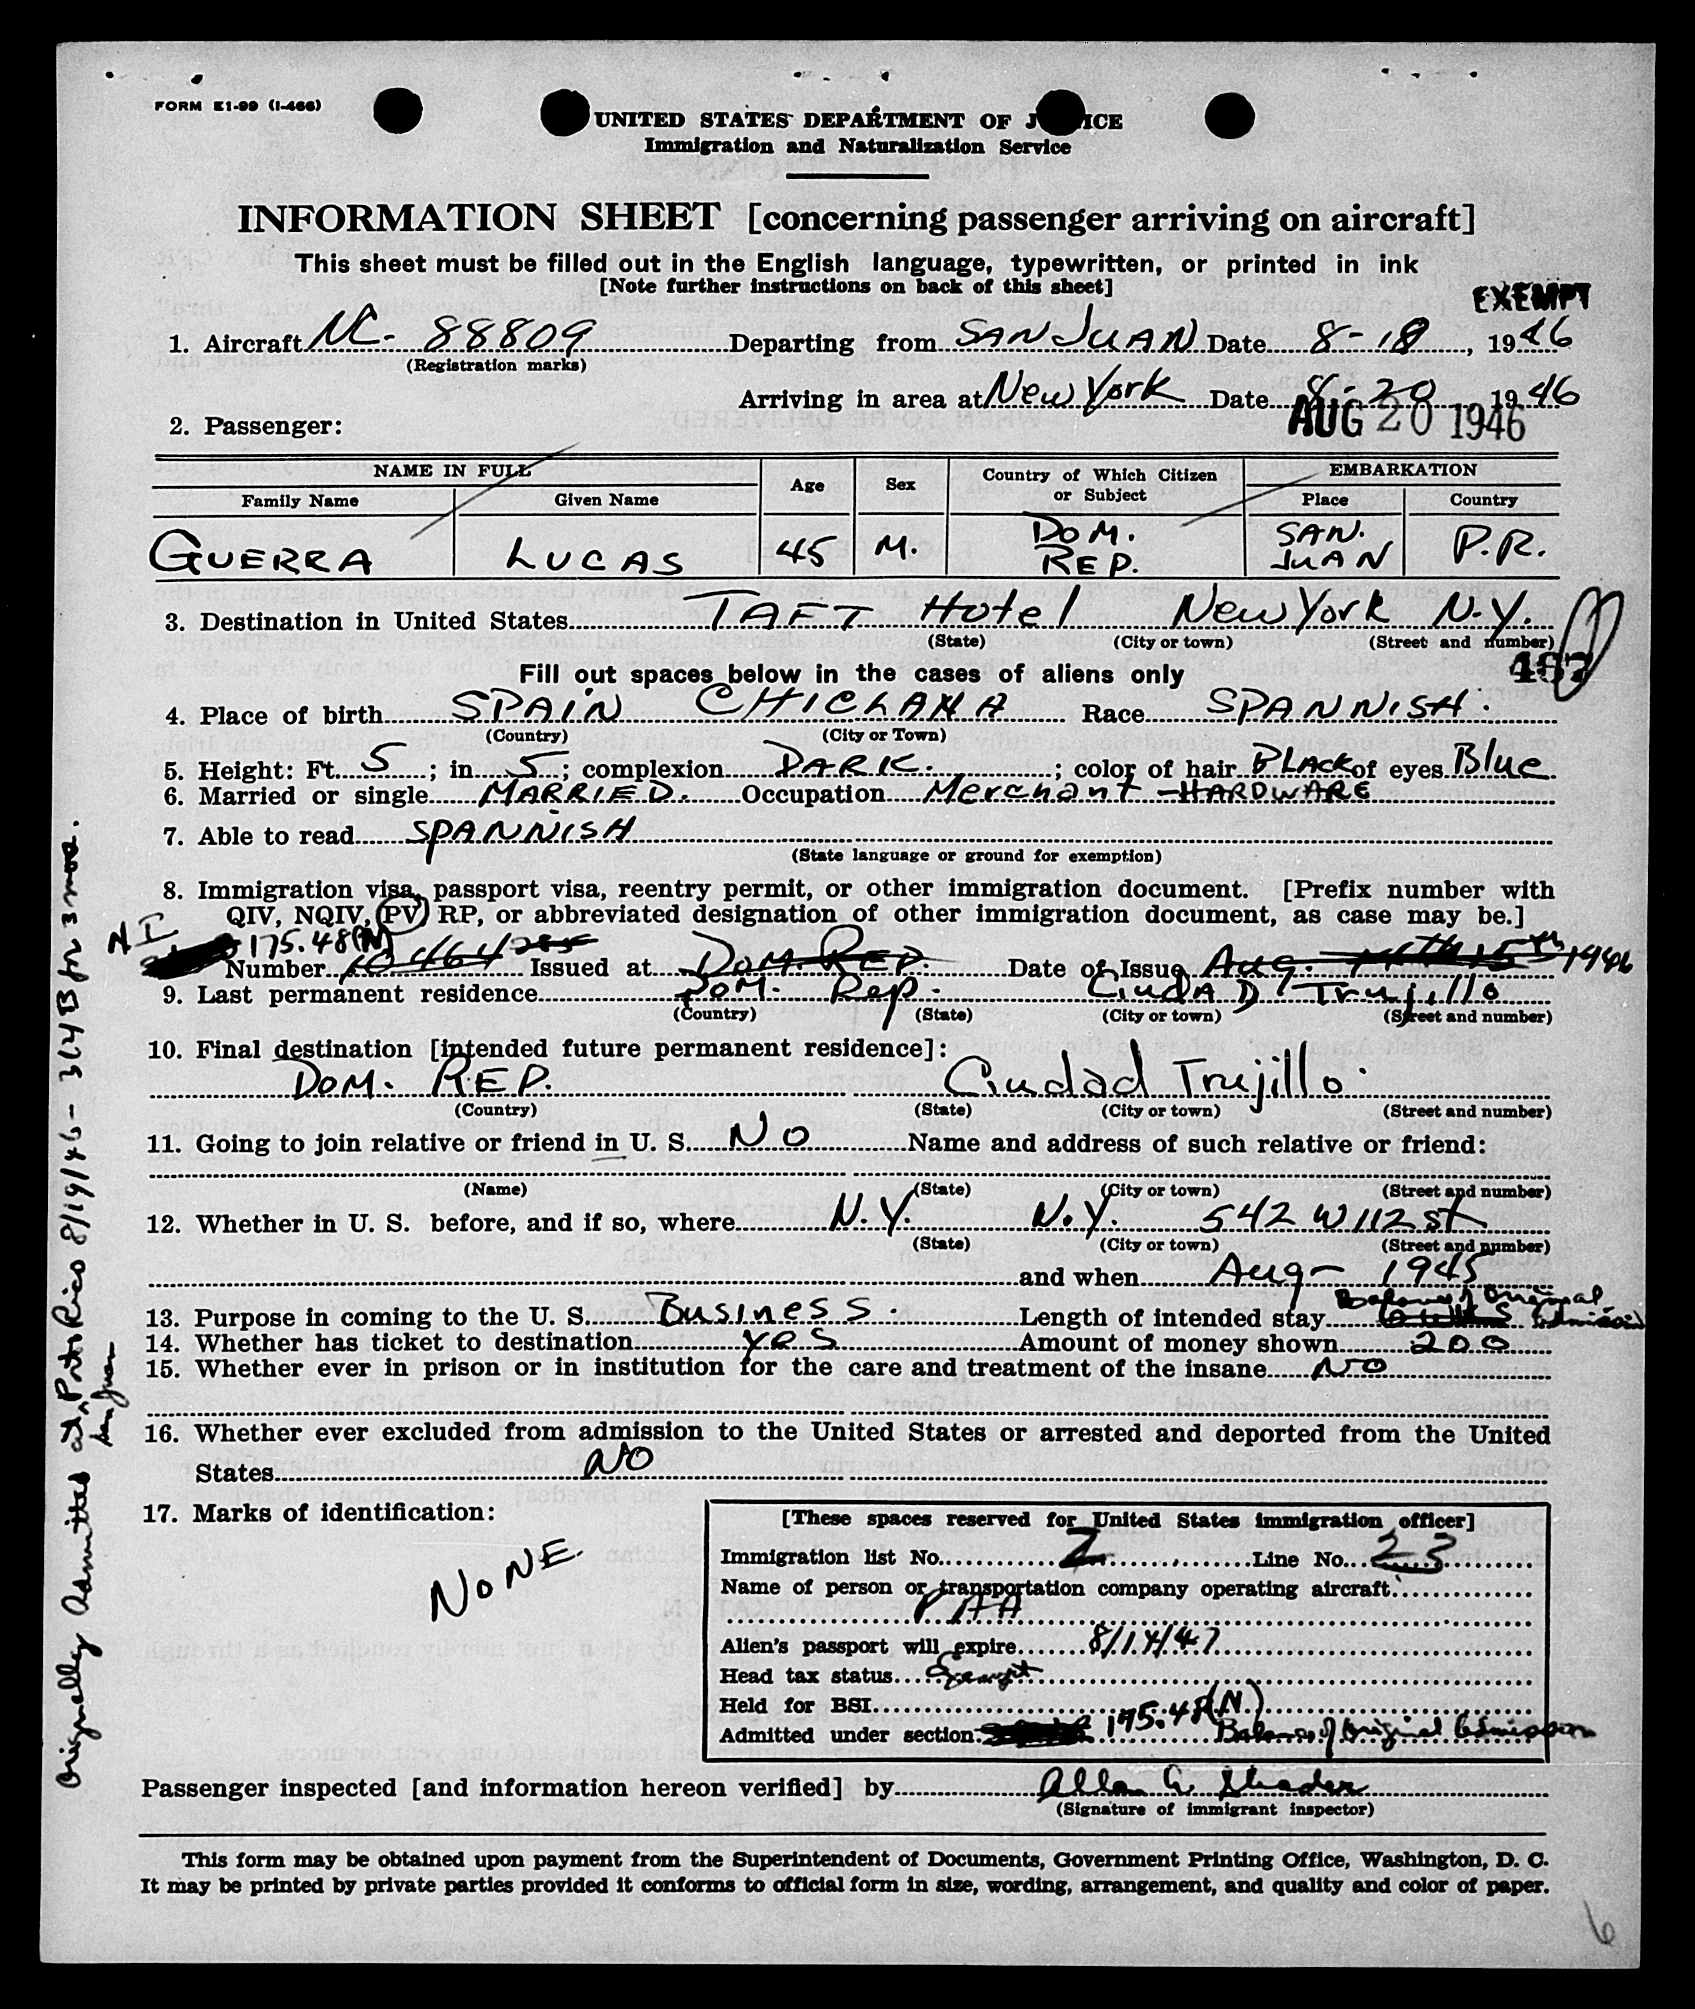 FORM E1-99 (I-466)
UNITED STATES DEPARTMENT OF J ICE
Immigration and Naturalization Service
INFORMATION SHEET [concerning passenger arriving on aircraft]
This sheet must be filled out in the English language, typewritten, or printed in ink
[Note further instructions on back of this sheet]
EXEMPT
1. Aircraft NC- 88809 Departing from SAN JUAN Date 8-18, 1946
(Registration marks)
Arriving in area at New York Date 8-20 1946
AUG 20 1946
2. Passenger:
NAME IN FULL Age Sex Country of Which Citizen or Subject EMBARKATION
Family Name Given Name Place Country
GUERRA LUCAS 45 M. DOM. REP. SAN. JUAN P.R.
3. Destination in United States TAFT Hotel New York N.Y.
(State) (City or town) (Street and number)
Fill out spaces below in the cases of aliens only
467
4. Place of birth SPAIN CHICLANA Race SPANNISH.
(Country) (City or Town)
5. Height: Ft. 5; in. 5; complexion DARK.; color of hair BLACK of eyes Blue
6. Married or single MARRIED. Occupation Merchant - HARDWARE
7. Able to read SPANNISH
(State language or ground for exemption)
8. Immigration visa, passport visa, reentry permit, or other immigration document. [Prefix number with
QIV, NQIV, PV, RP, or abbreviated designation of other immigration document, as case may be.]
NI
175.48(N)
Number 10464 Issued at DOM. REP. Date of Issue Aug. 15th 1946
9. Last permanent residence DOM. Rep. CiudAD Trujillo
(Country) (State) (City or town) (Street and number)
10. Final destination [intended future permanent residence]:
DOM. REP. Ciudad Trujillo.
(Country) (State) (City or town) (Street and number)
11. Going to join relative or friend in U. S. NO Name and address of such relative or friend:
(Name) (State) (City or town) (Street and number)
12. Whether in U. S. before, and if so, where N.Y. N.Y. 542 W 112 St
(State) (City or town) (Street and number)
and when Aug- 1945
Balance of Original
13. Purpose in coming to the U. S. Business. Length of intended stay Admission
14. Whether has ticket to destination yes Amount of money shown 200
15. Whether ever in prison or in institution for the care and treatment of the insane NO
16. Whether ever excluded from admission to the United States or arrested and deported from the United
States NO
17. Marks of identification:
NONE.
[These spaces reserved for United States immigration officer]
Immigration list No. 2 Line No. 23
Name of person or transportation company operating aircraft
PAA
Alien's passport will expire 8/14/47
Head tax status Exempt
Held for BSI
Admitted under section 175.48(N) Balance of Original Admission
Passenger inspected [and information hereon verified] by Allan G.
(Signature of immigrant inspector)
This form may be obtained upon payment from the Superintendent of Documents, Government Printing Office, Washington, D. C.
It may be printed by private parties provided it conforms to official form in size, wording, arrangement, and quality and color of paper.
6
Originally Admitted at Porto Rico 8/19/46 - 3(4)B for 3 mos.
San Juan